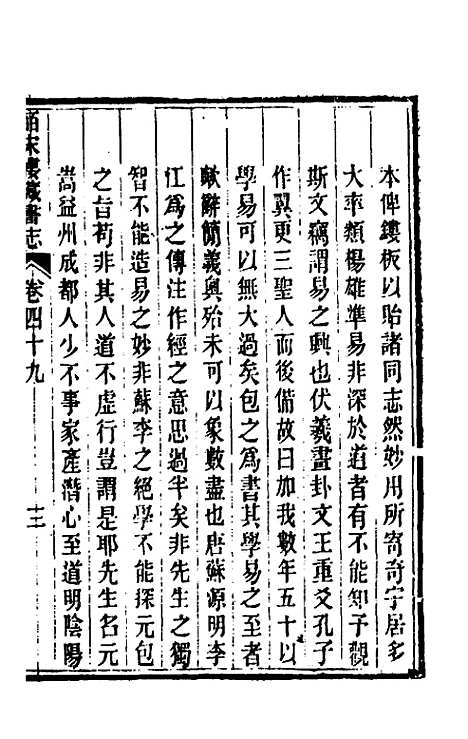 本俾鏤板以貽諸同志然妙用所寄奇字居多
大率類楊雄準易非深於道者有不能知予觀
斯文竊謂易之興也伏羲畫卦文王重爻孔子
作翼更三聖人而後備故曰加我數年五十以
學易可以無大過矣包之爲書其學易之至者
歟辭簡義奧殆未可以象數盡也唐蘇源明李
江爲之傳注作經之意思過半矣非先生之獨
智不能造易之妙非蘇李之絕學不能探元包
之旨苟非其人道不虛行豈謂是耶先生名元
嵩益州成都人少不事家產潛心至道明陰陽
皕宋樓藏書志
卷四十九
十二